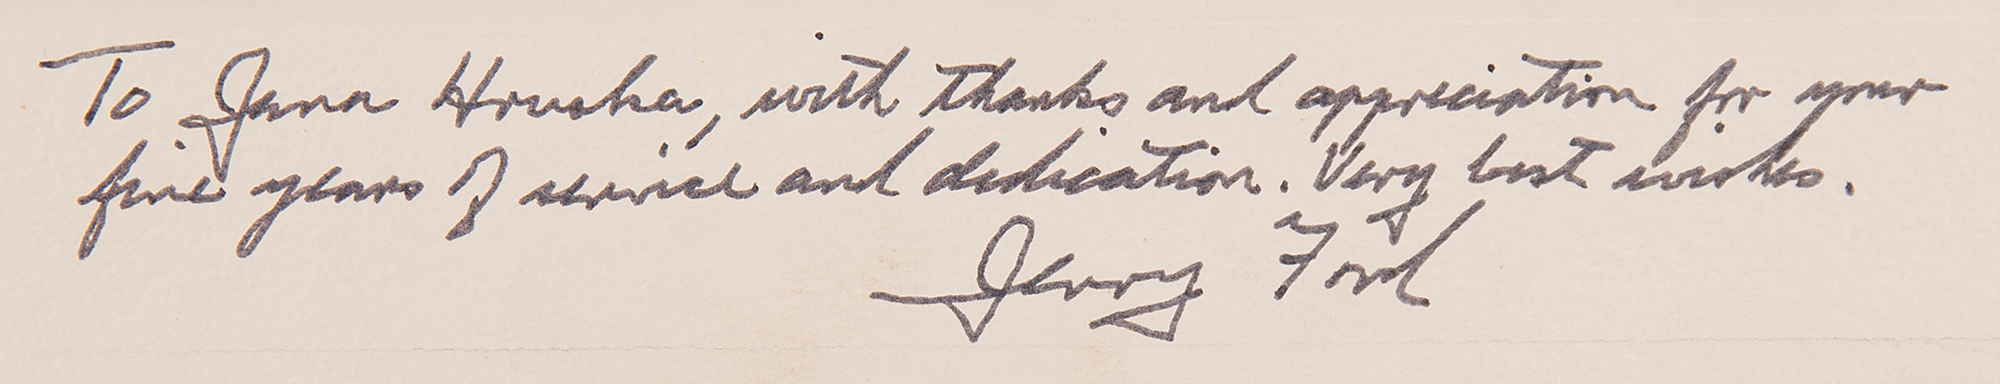 To Jana Hruska, with thanks and appreciation for your
fine years of service and dedication. Very best wishes.
Jerry Ford